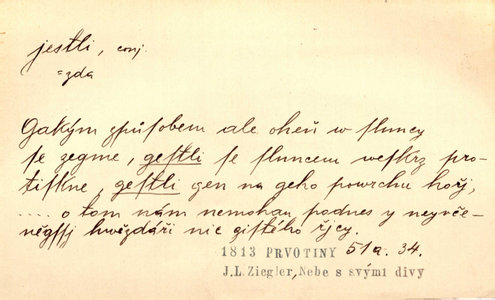 jestli, conj.
= zda
Gakým zpùſobem ale oheň w ſluncy
ſe zegme, geſtli ſe ſluncem weſkrz pro-
tiſkne, geſtli gen na geho powrchu hoří,
.... o tom nám nemohau podnes y neyvče-
něgſſj hwězdáři nic giſtého řjcy.
1813 PRVOTINY 51a. 34.
J.L. Ziegler, Nebe s svými divy